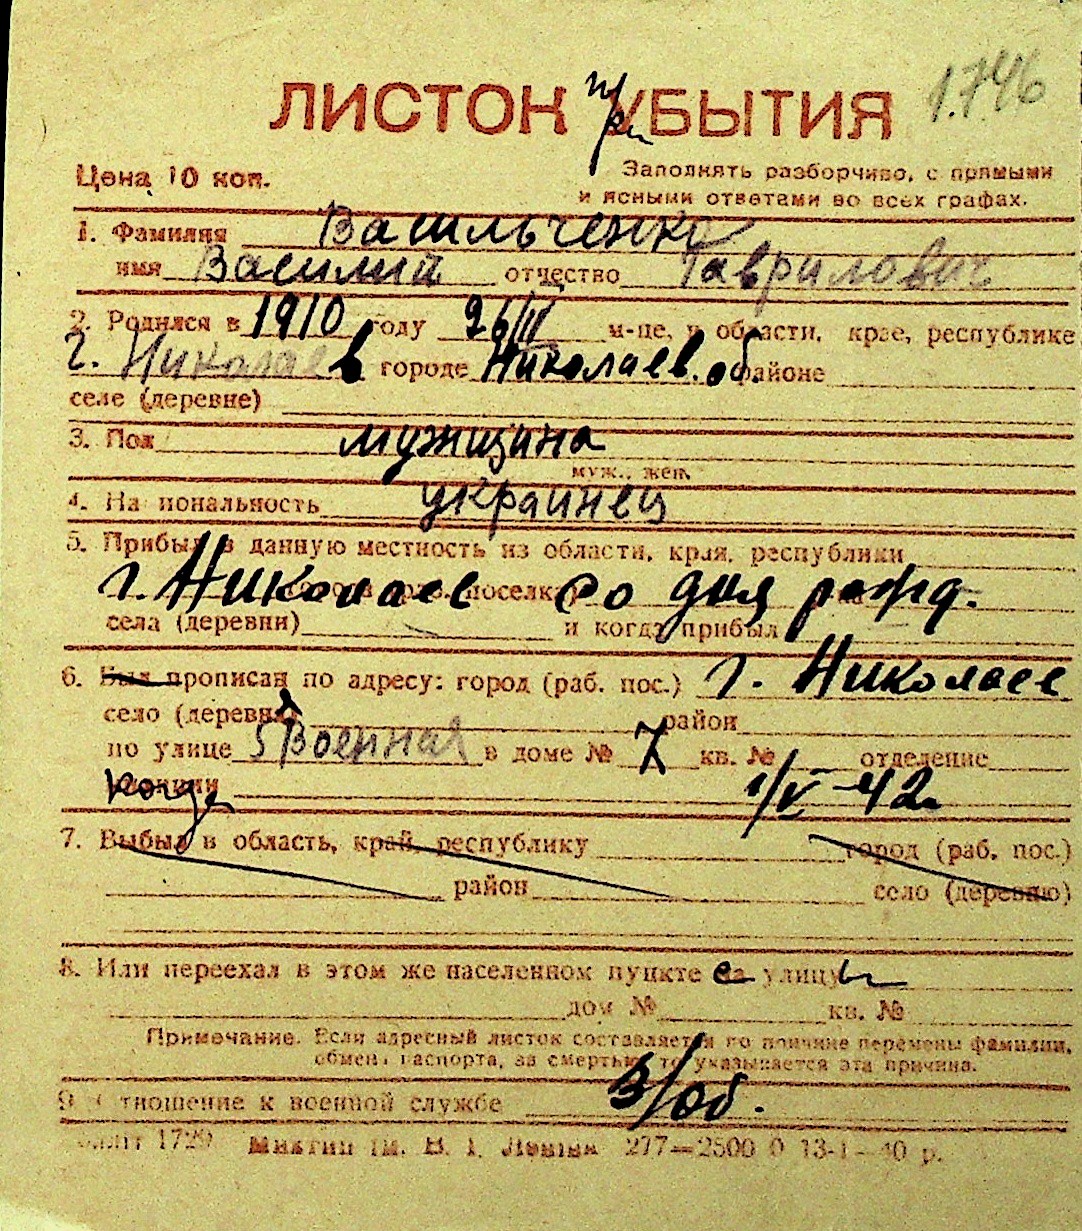 1.746
ЛИСТОК при УБЫТИЯ
Цена 10 коп.
Заполнять разборчиво, с прямыми
и ясными ответами во всех графах.
1. Фамилия Васильченко
имя Василий отчество Гаврилович
2. Родился в 1910 году 26/IV м-це, в области, крае, республике
г. Николаев городе Николаев. об. районе
селе (деревне)
3. Пол мужщина
муж., жен.
4. Национальность украинец
5. Прибыл в данную местность из области, края, республики
г. Николаев со дня рожд.
поселка
села (деревни) и когда прибыл
6. Был прописан по адресу: город (раб. пос.) г. Николаев
село (деревня) район
по улице 5 Военная в доме № 7 кв. № отделение
милиции когда 1/V-42
7. Выбыл в область, край, республику город (раб. пос.)
район село (деревню)
8. Или переехал в этом же населенном пункте с улицы
дом № кв. №
Примечание. Если адресный листок составляется по причине перемены фамилии,
обмена паспорта, за смертью, то указывается эта причина.
9. Отношение к военной службе в/об.
1729 277—2500 0 13-1-40 р.